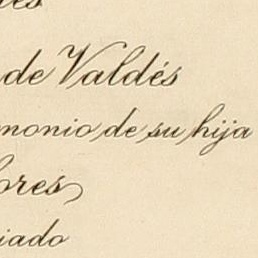 de Valdés
monio de su hija
ores
iado